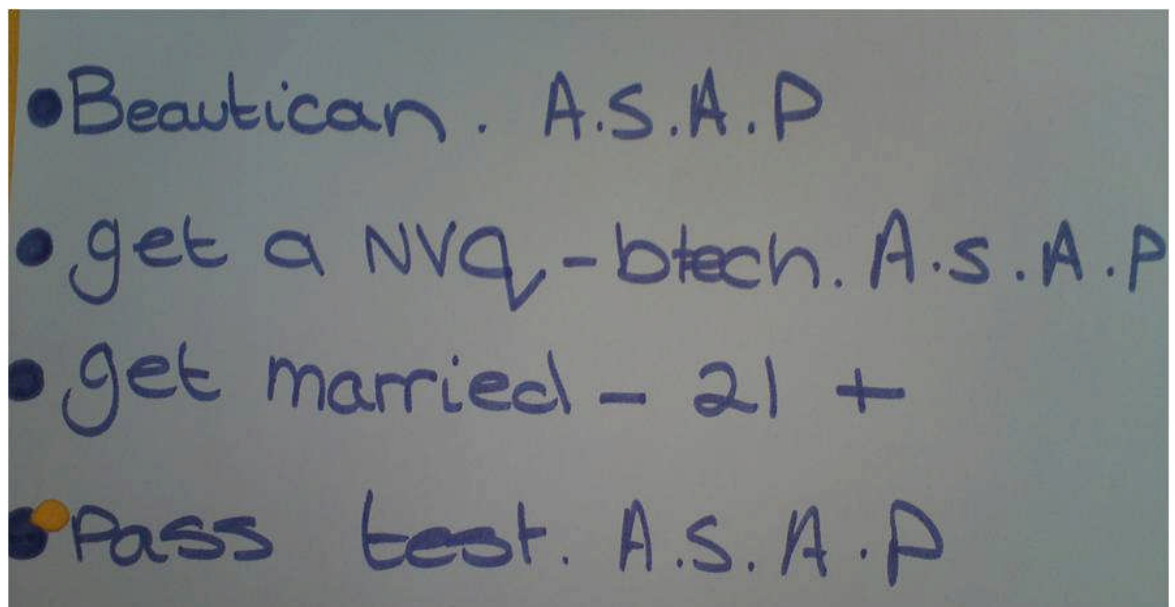 • Beautican. A.S.A.P
• get a NVQ - btech. A.S.A.P
• get married - 21 +
• Pass test. A.S.A.P